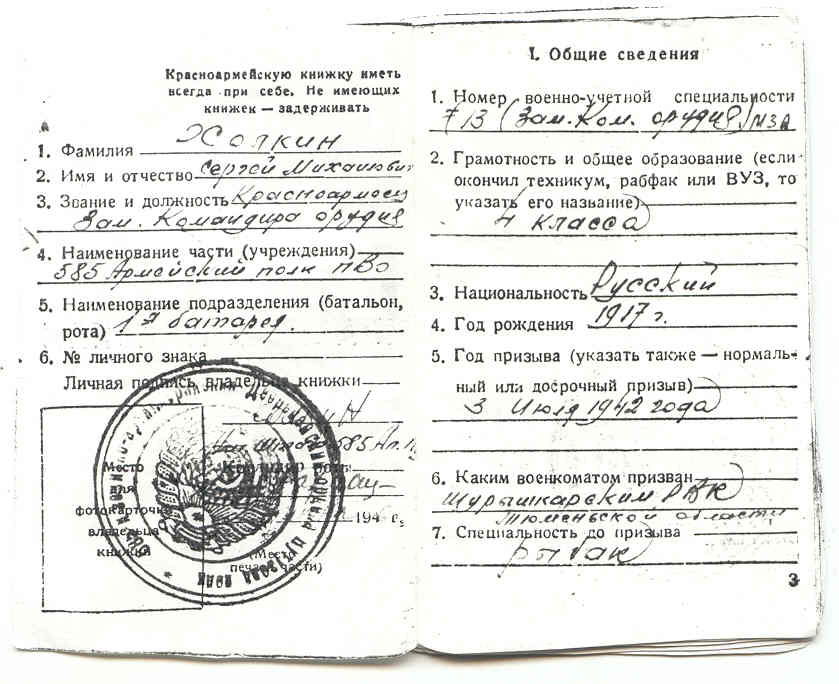 Красноармейскую книжку иметь
всегда при себе. Не имеющих
книжек — задерживать
1. Фамилия Холкин
2. Имя и отчество Сергей Михайлович
3. Звание и должность Красноармеец
Зам. Командира орудия
4. Наименование части (учреждения)
585 Армейский полк ПВО
5. Наименование подразделения (батальон,
рота) 1я батарея.
6. № личного знака
Личная подпись владельца книжки
585
Командир роты
Место
для
фотокарточки
владельца
книжки
194 г.
(Место
печати части)
I. Общие сведения
1. Номер военно-учетной специальности
713 (Зам. Ком. орудия) МЗА
2. Грамотность и общее образование (если
окончил техникум, рабфак или ВУЗ, то
указать его название)
4 класса
3. Национальность Русский
4. Год рождения 1917 г.
5. Год призыва (указать также — нормаль-
ный или досрочный призыв)
3 Июля 1942 года
6. Каким военкоматом призван
Шурышкарским РВК
Тюменьской области
7. Специальность до призыва
рыбак
3